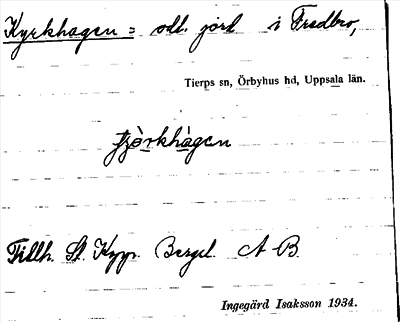 Kyrkhagen = odl. jord i Fredbro,
Tierps sn, Örbyhus hd, Uppsala län.
Tillh. St. Koppr. Bergsl. A B.
Ingegärd Isaksson 1934.